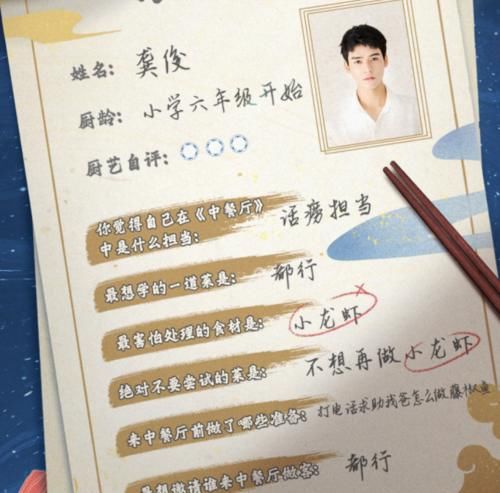 姓名: 龚俊
厨龄: 小学六年级开始
厨艺自评:
你觉得自己在《中餐厅》
中是什么担当: 话痨担当
最想学的一道菜是: 都行
最害怕处理的食材是: 小龙虾
绝对不要尝试的菜是: 不想再做小龙虾
来中餐厅前做了哪些准备: 打电话求助我爸怎么做藤椒鱼
最想邀请谁来中餐厅做客: 都行